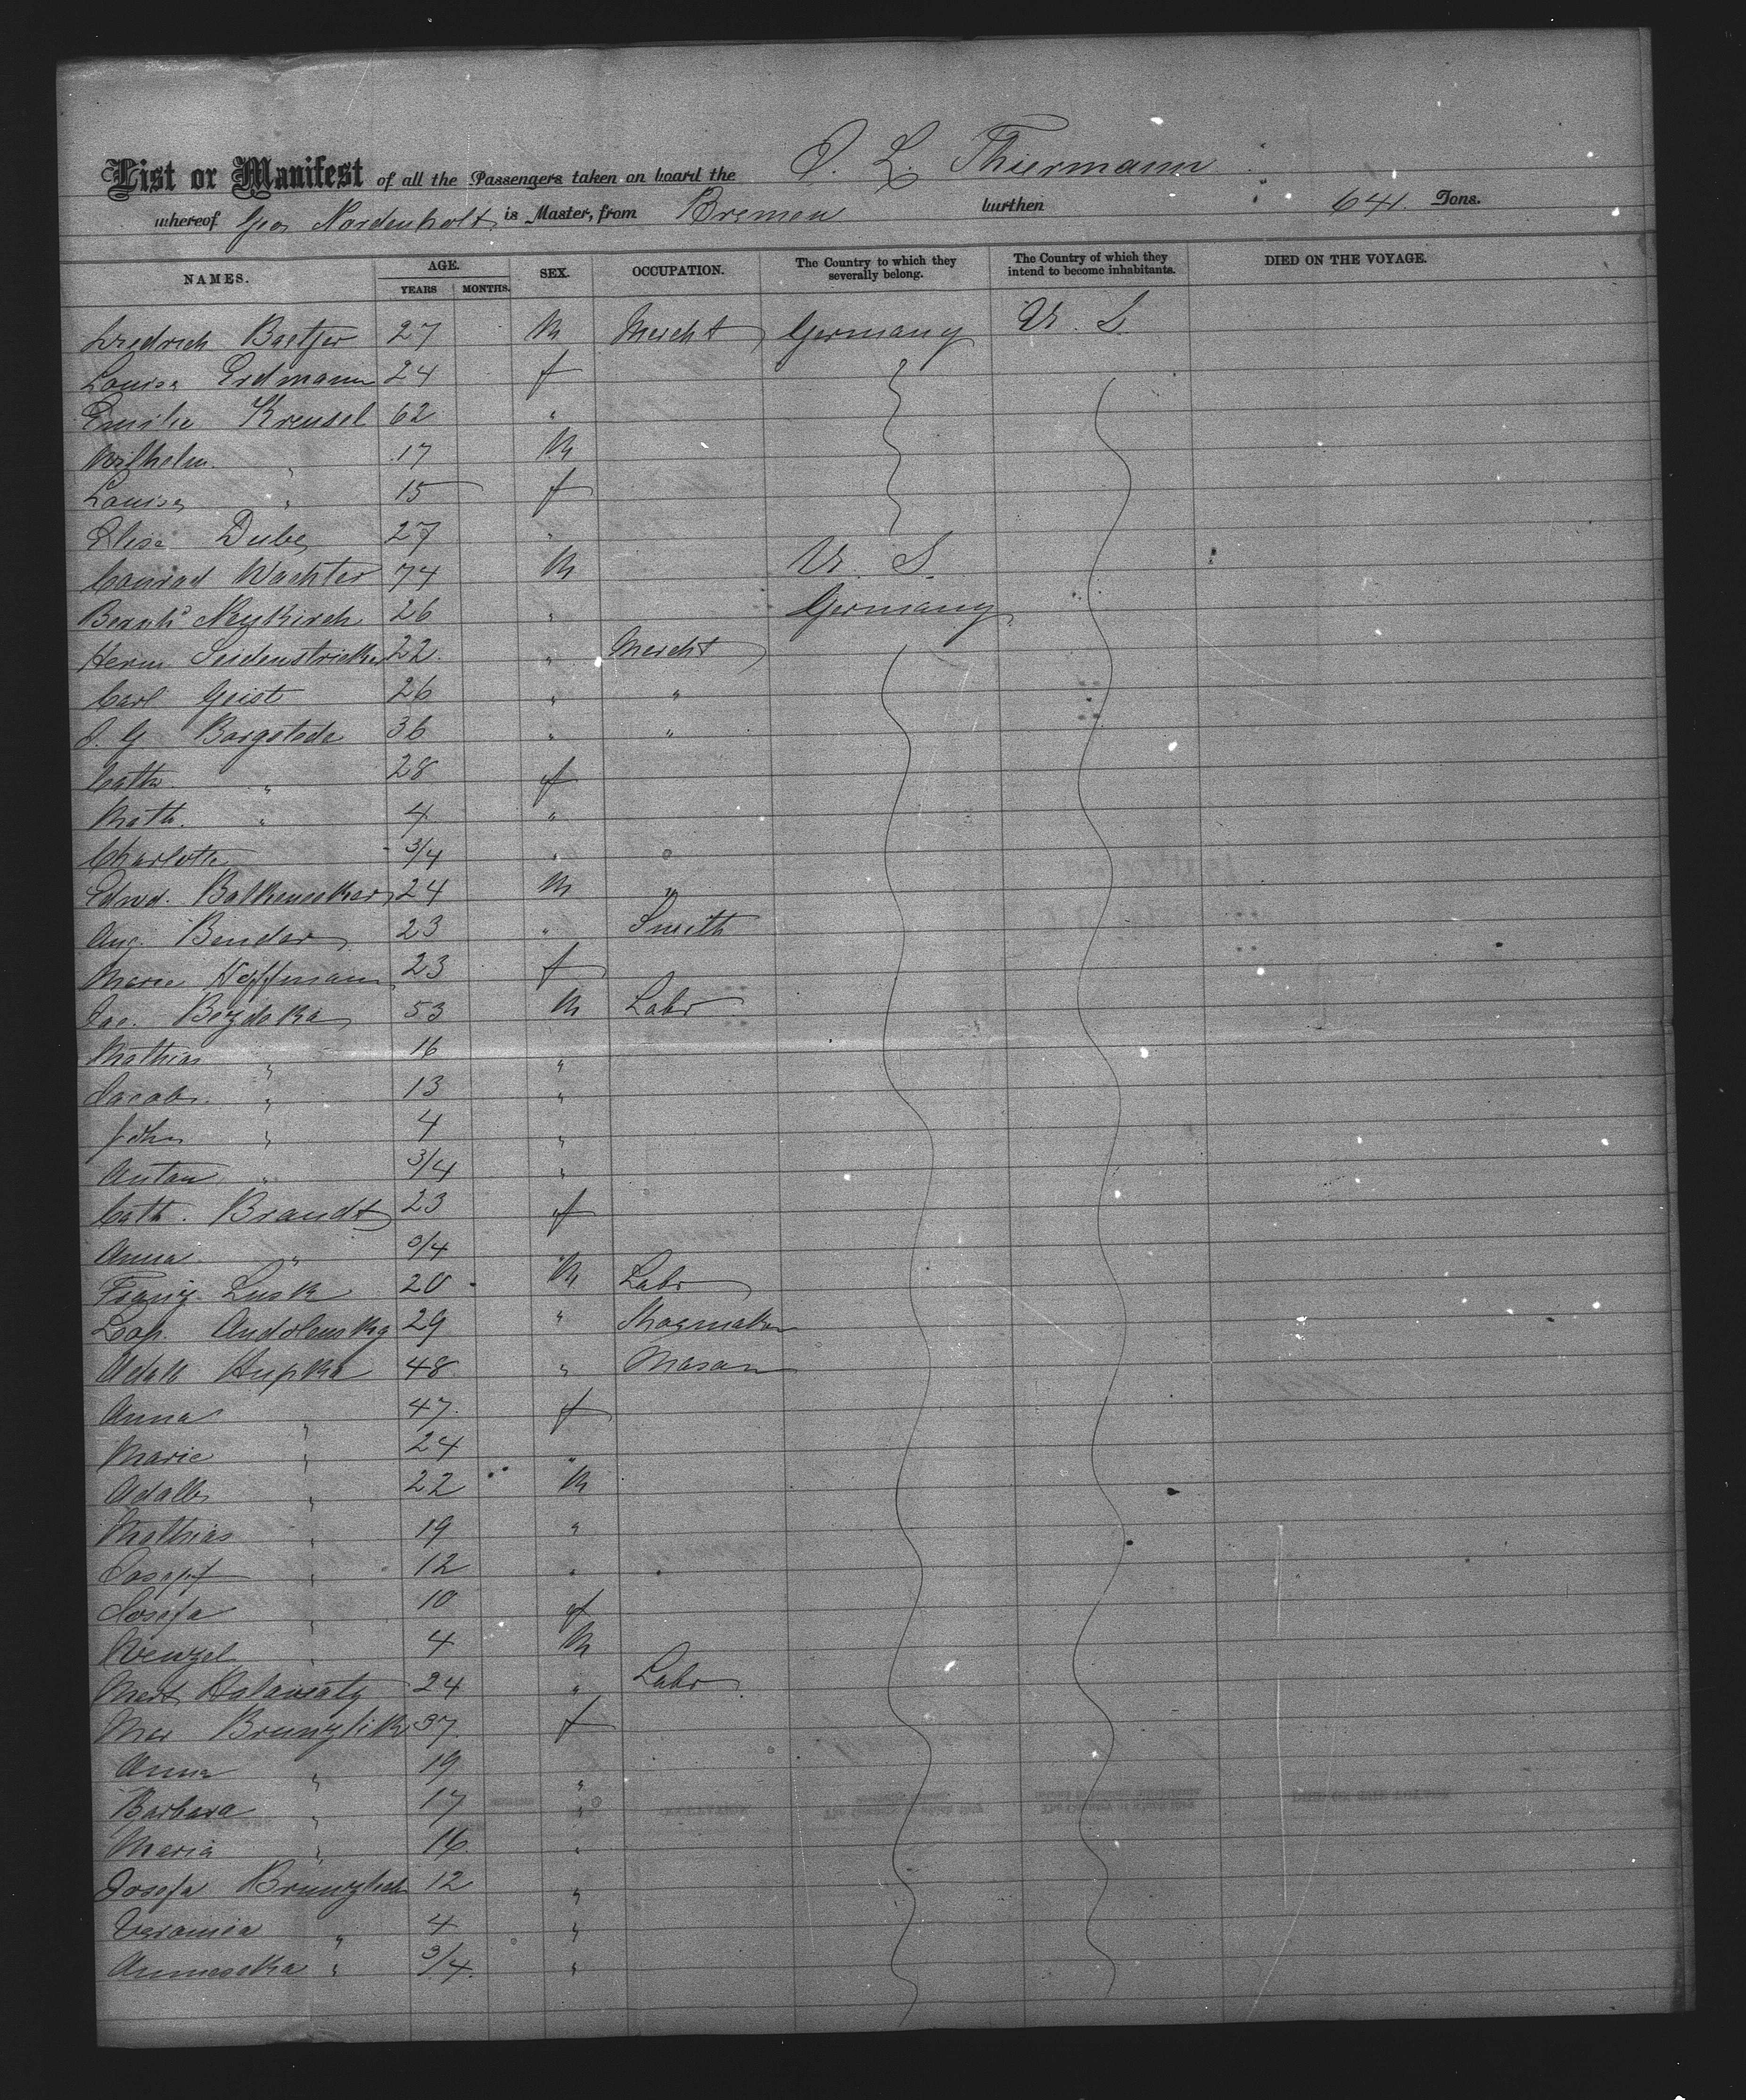 List or Manifest of all the Passengers taken on board the J. L. Thiermann
whereof Geo Nordenholt is Master, from Bremen burthen 641 Tons.
NAMES. AGE. YEARS MONTHS. SEX. OCCUPATION. The Country to which they severally belong. The Country of which they intend to become inhabitants. DIED ON THE VOYAGE.
Friedrich Baetjer 27 M Mercht Germany U. S.
Louisa Erdmann 24 f
Emilie Kreusel 62 "
Wilhelm " 17 M
Louisa " 15 f
Elise Dube 27 "
Conrad Wachter 74 M U. S.
Bernhd Neukirch 26 " Germany
Herm Seidenstricker 22 " Mercht
Carl Geist 26 " "
J. G Bargstede 36 " "
Cathr. " 28 f
Math. " 4 "
Charlotte 3/4 "
Edwd. 24 M "
Aug. Bender 23 " Smith
Marie Hoffmann 23 f
Jac. Bezdeka 53 M Labr
Mathias " 16 "
Jacob " 13 "
John " 4 "
Anton " 3/4 "
Cath. Brandt 23 f
Anna " 3/4
Franz Lusk 20 M Labr
Leop. 29 " Shoemaker
Adalb Hupka 48 " Mason
Anna " 47 f
Marie " 24 "
Adalb " 22 M
Mathias " 19 "
Josepf " 12 "
Josefa " 10 f
Wenzel " 4 M
24 " Labr
Mar Brunzlik 37 f
Anna " 19 "
Barbara " 17 "
Maria " 16 "
Josefa Brunzlick 12 "
Veronica " 4 "
" 3/4 "